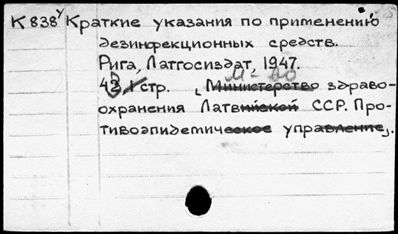 К 838у Краткие указания по применению
дезинфекционных средств.
Рига, Латгосиздат, 1947.
М-во
43 стр. [Министерство здраво-
охранения Латвийской ССР. Про-
тивоэпидемическое управление].